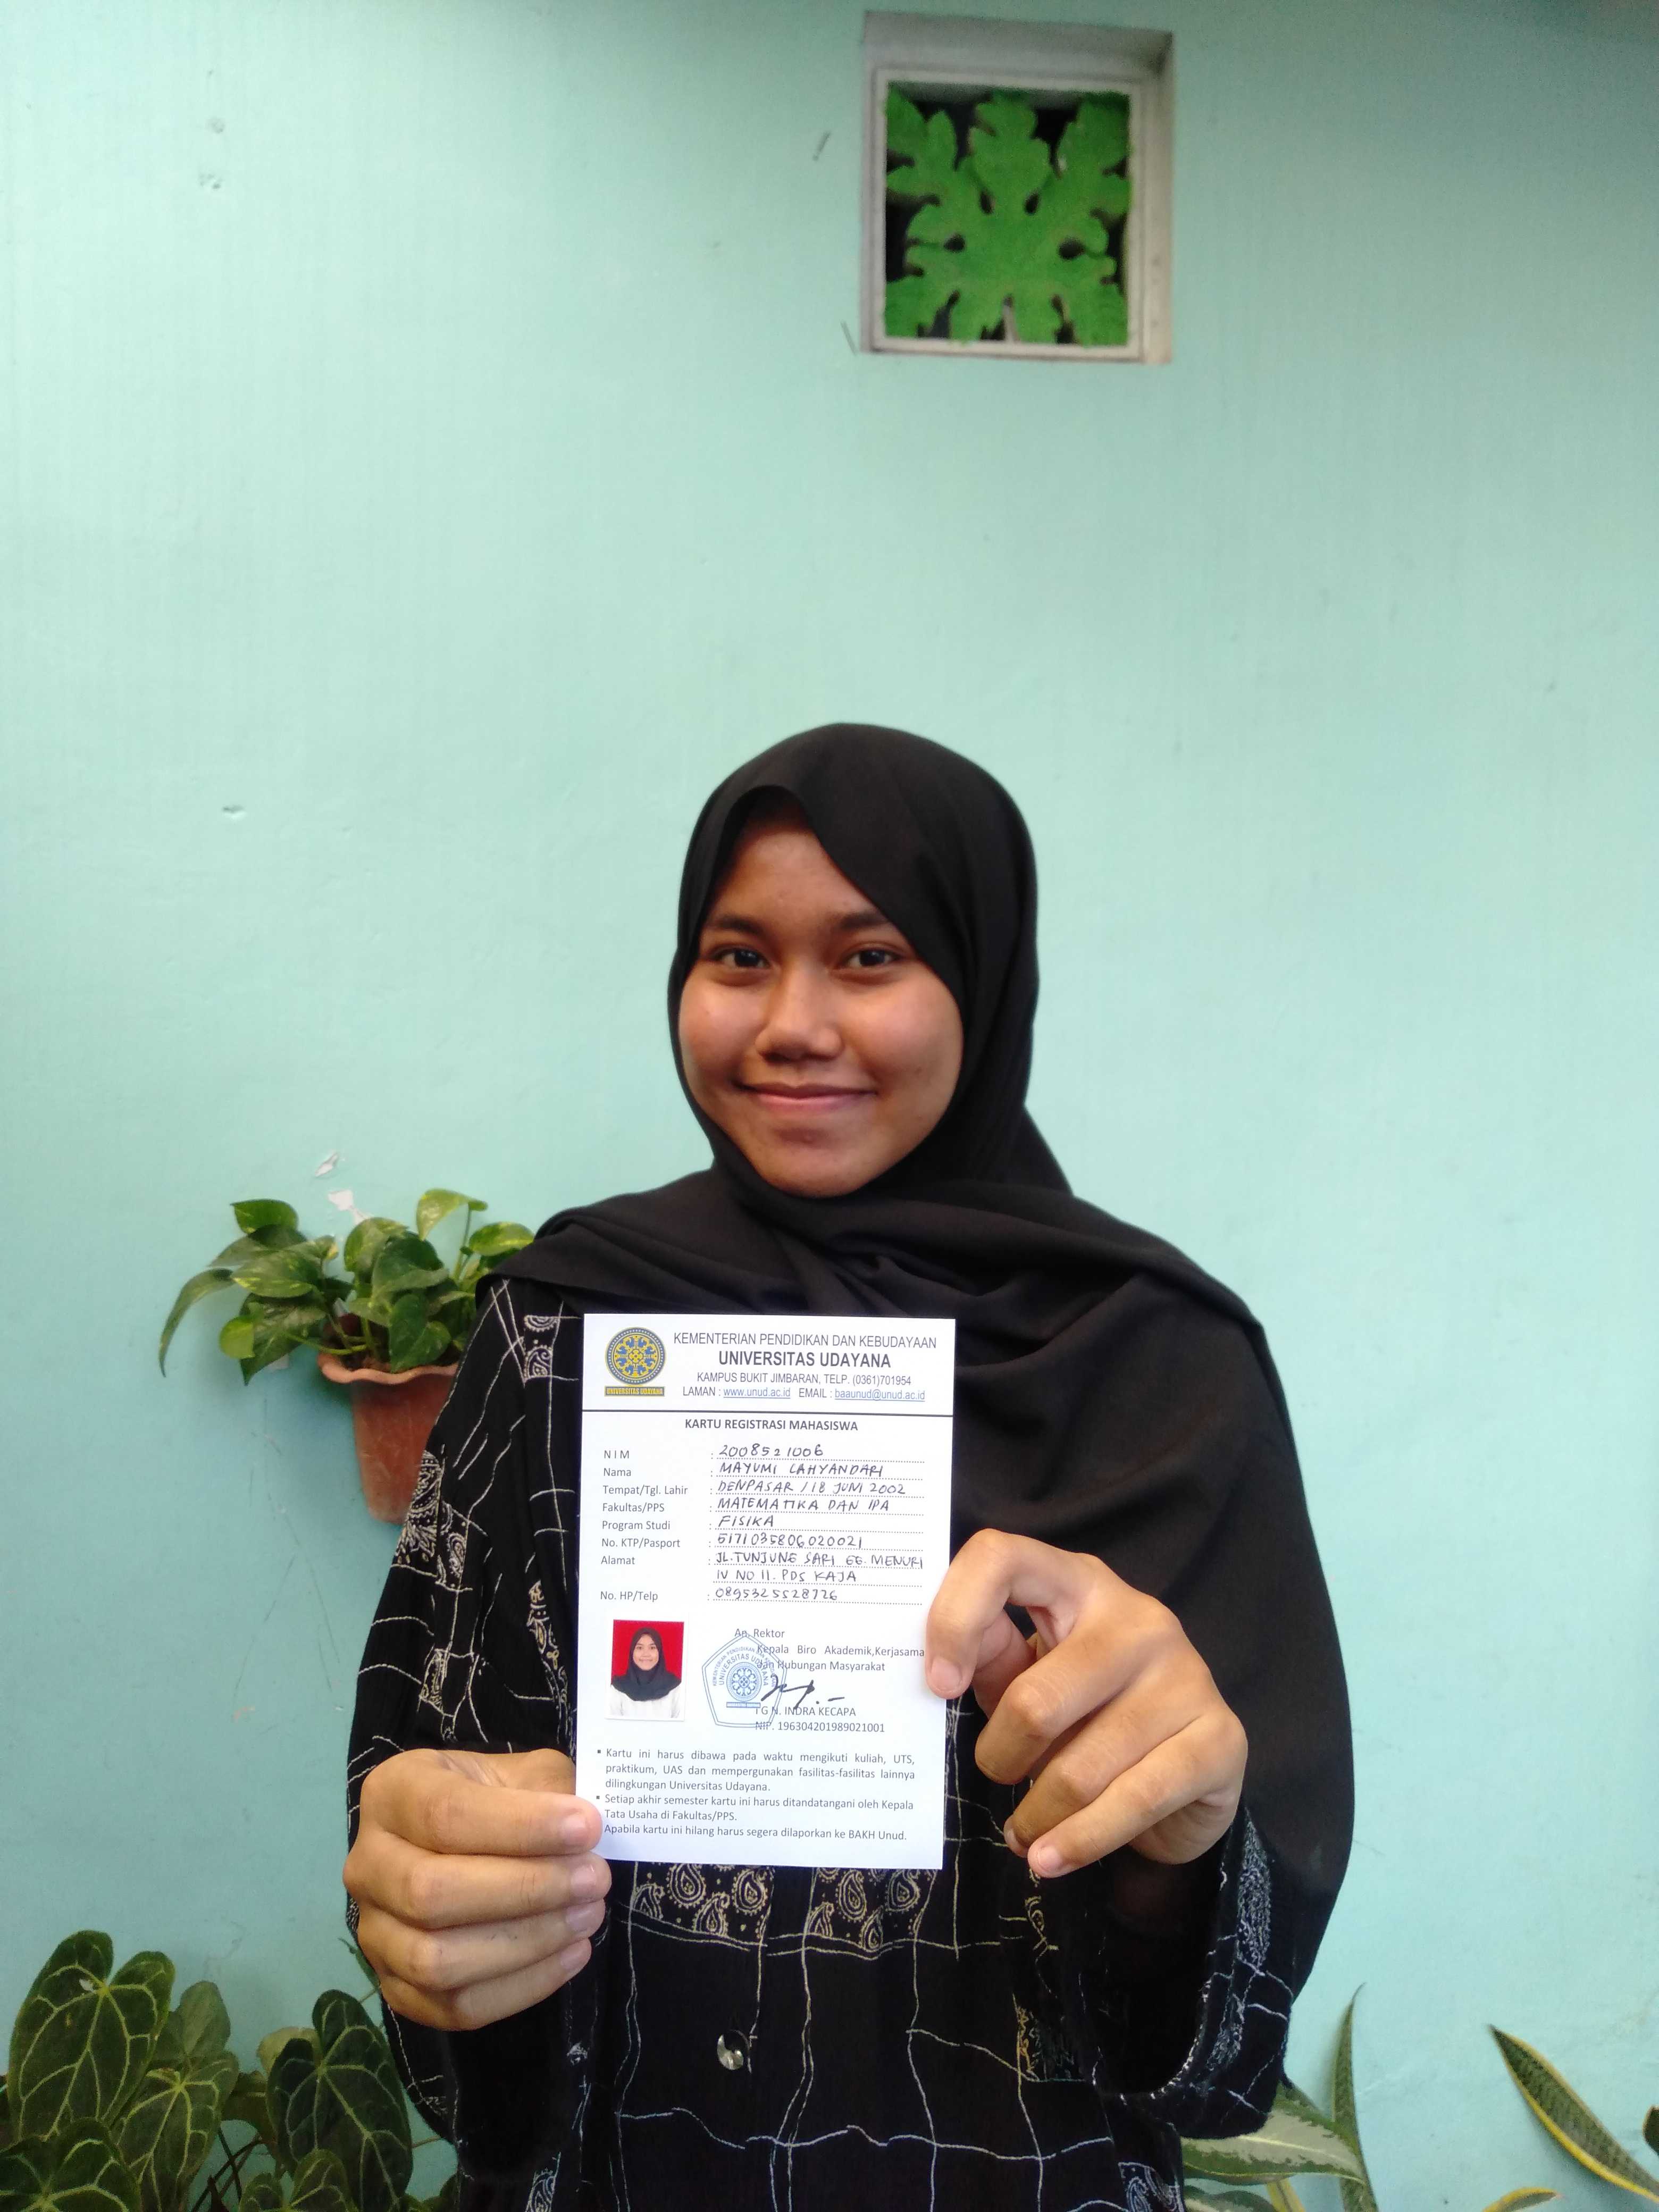 KEMENTERIAN PENDIDIKAN DAN KEBUDAYAAN
UNIVERSITAS UDAYANA
KAMPUS BUKIT JIMBARAN, TELP. (0361)701954
LAMAN : www.unud.ac.id EMAIL : baaunud@unud.ac.id
UNIVERSITAS UDAYANA
KARTU REGISTRASI MAHASISWA
NIM : 2008521006
Nama : MAYUMI CAHYANDARI
Tempat/Tgl. Lahir : DENPASAR / 18 JUNI 2002
Fakultas/PPS : MATEMATIKA DAN IPA
Program Studi : FISIKA
No. KTP/Pasport : 5171035806020021
Alamat : JL. TUNJUNG SARI GG. MENURI
IV NO 11. PDS KAJA
No. HP/Telp : 0895325528726
An. Rektor
Kepala Biro Akademik,Kerjasama
dan Hubungan Masyarakat
UNIVERSITAS UDAYANA
I G N. INDRA KECAPA
NIP. 196304201989021001
▪ Kartu ini harus dibawa pada waktu mengikuti kuliah, UTS,
praktikum, UAS dan mempergunakan fasilitas-fasilitas lainnya
dilingkungan Universitas Udayana.
▪ Setiap akhir semester kartu ini harus ditandatangani oleh Kepala
Tata Usaha di Fakultas/PPS.
Apabila kartu ini hilang harus segera dilaporkan ke BAKH Unud.